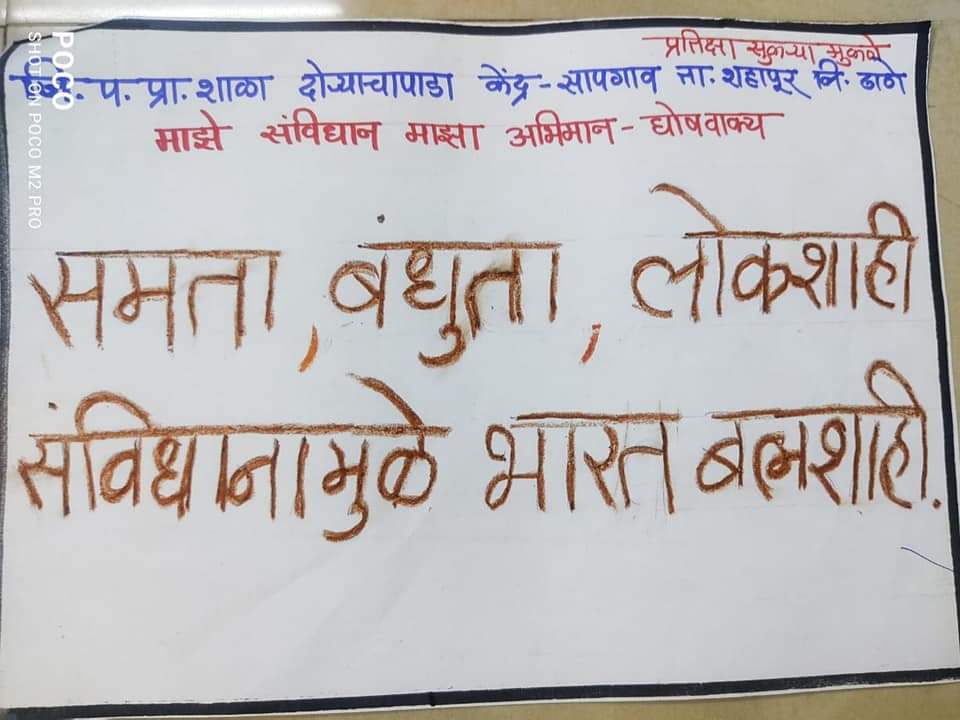 प्रतिक्षा सुकऱ्या मुकळे
जि. प. प्रा. शाळा दोऱ्याचापाडा केंद्र - सापगाव ता. शहापूर जि. ठाणे
माझे संविधान माझा अभिमान - घोषवाक्य
समता, बंधुता, लोकशाही
संविधानामुळे भारत बलशाही.
POCO
SHOT ON POCO M2 PRO